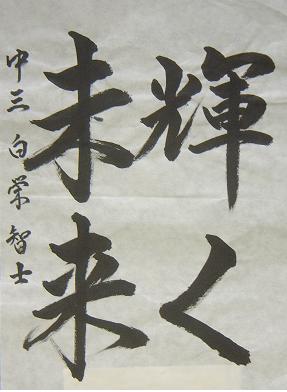 輝く
未来
中三 白栄智士